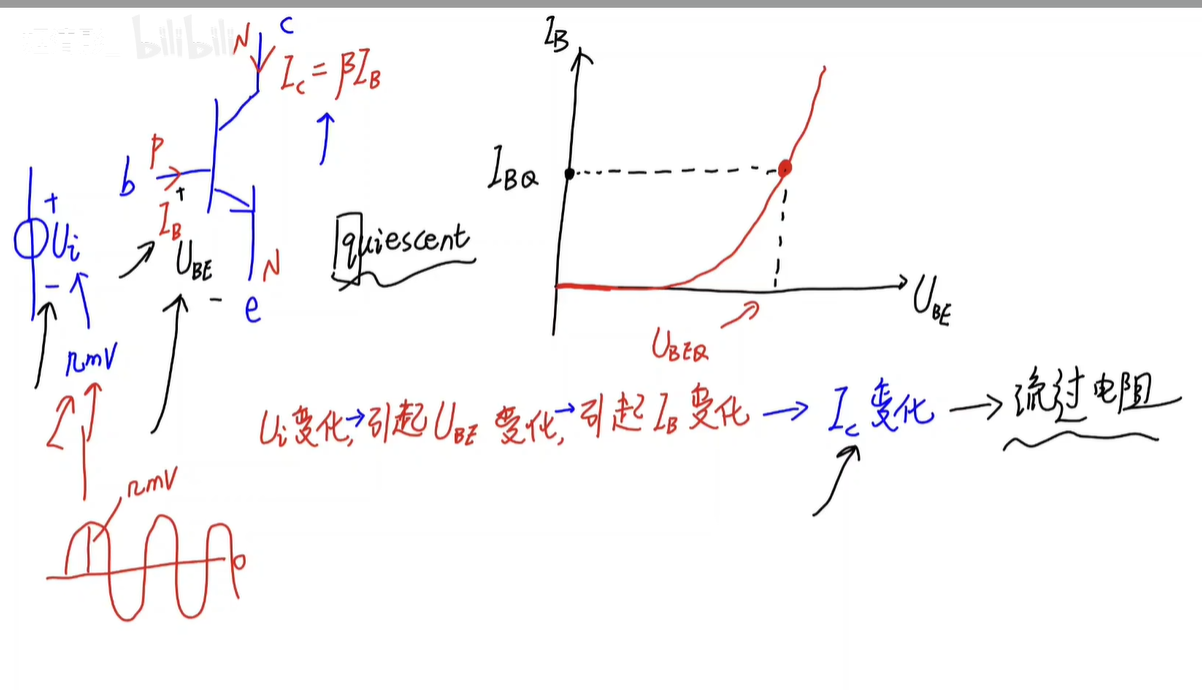 bilibili
N c
I_C = βI_B
P
b
+
I_B
+
U_i
U_BE
-
-
N
e
nmV
nmV
quiescent
I_B
I_BQ
U_BE
U_BEQ
U_i变化,→引起U_BE变化,→引起I_B变化→I_C变化→流过电阻